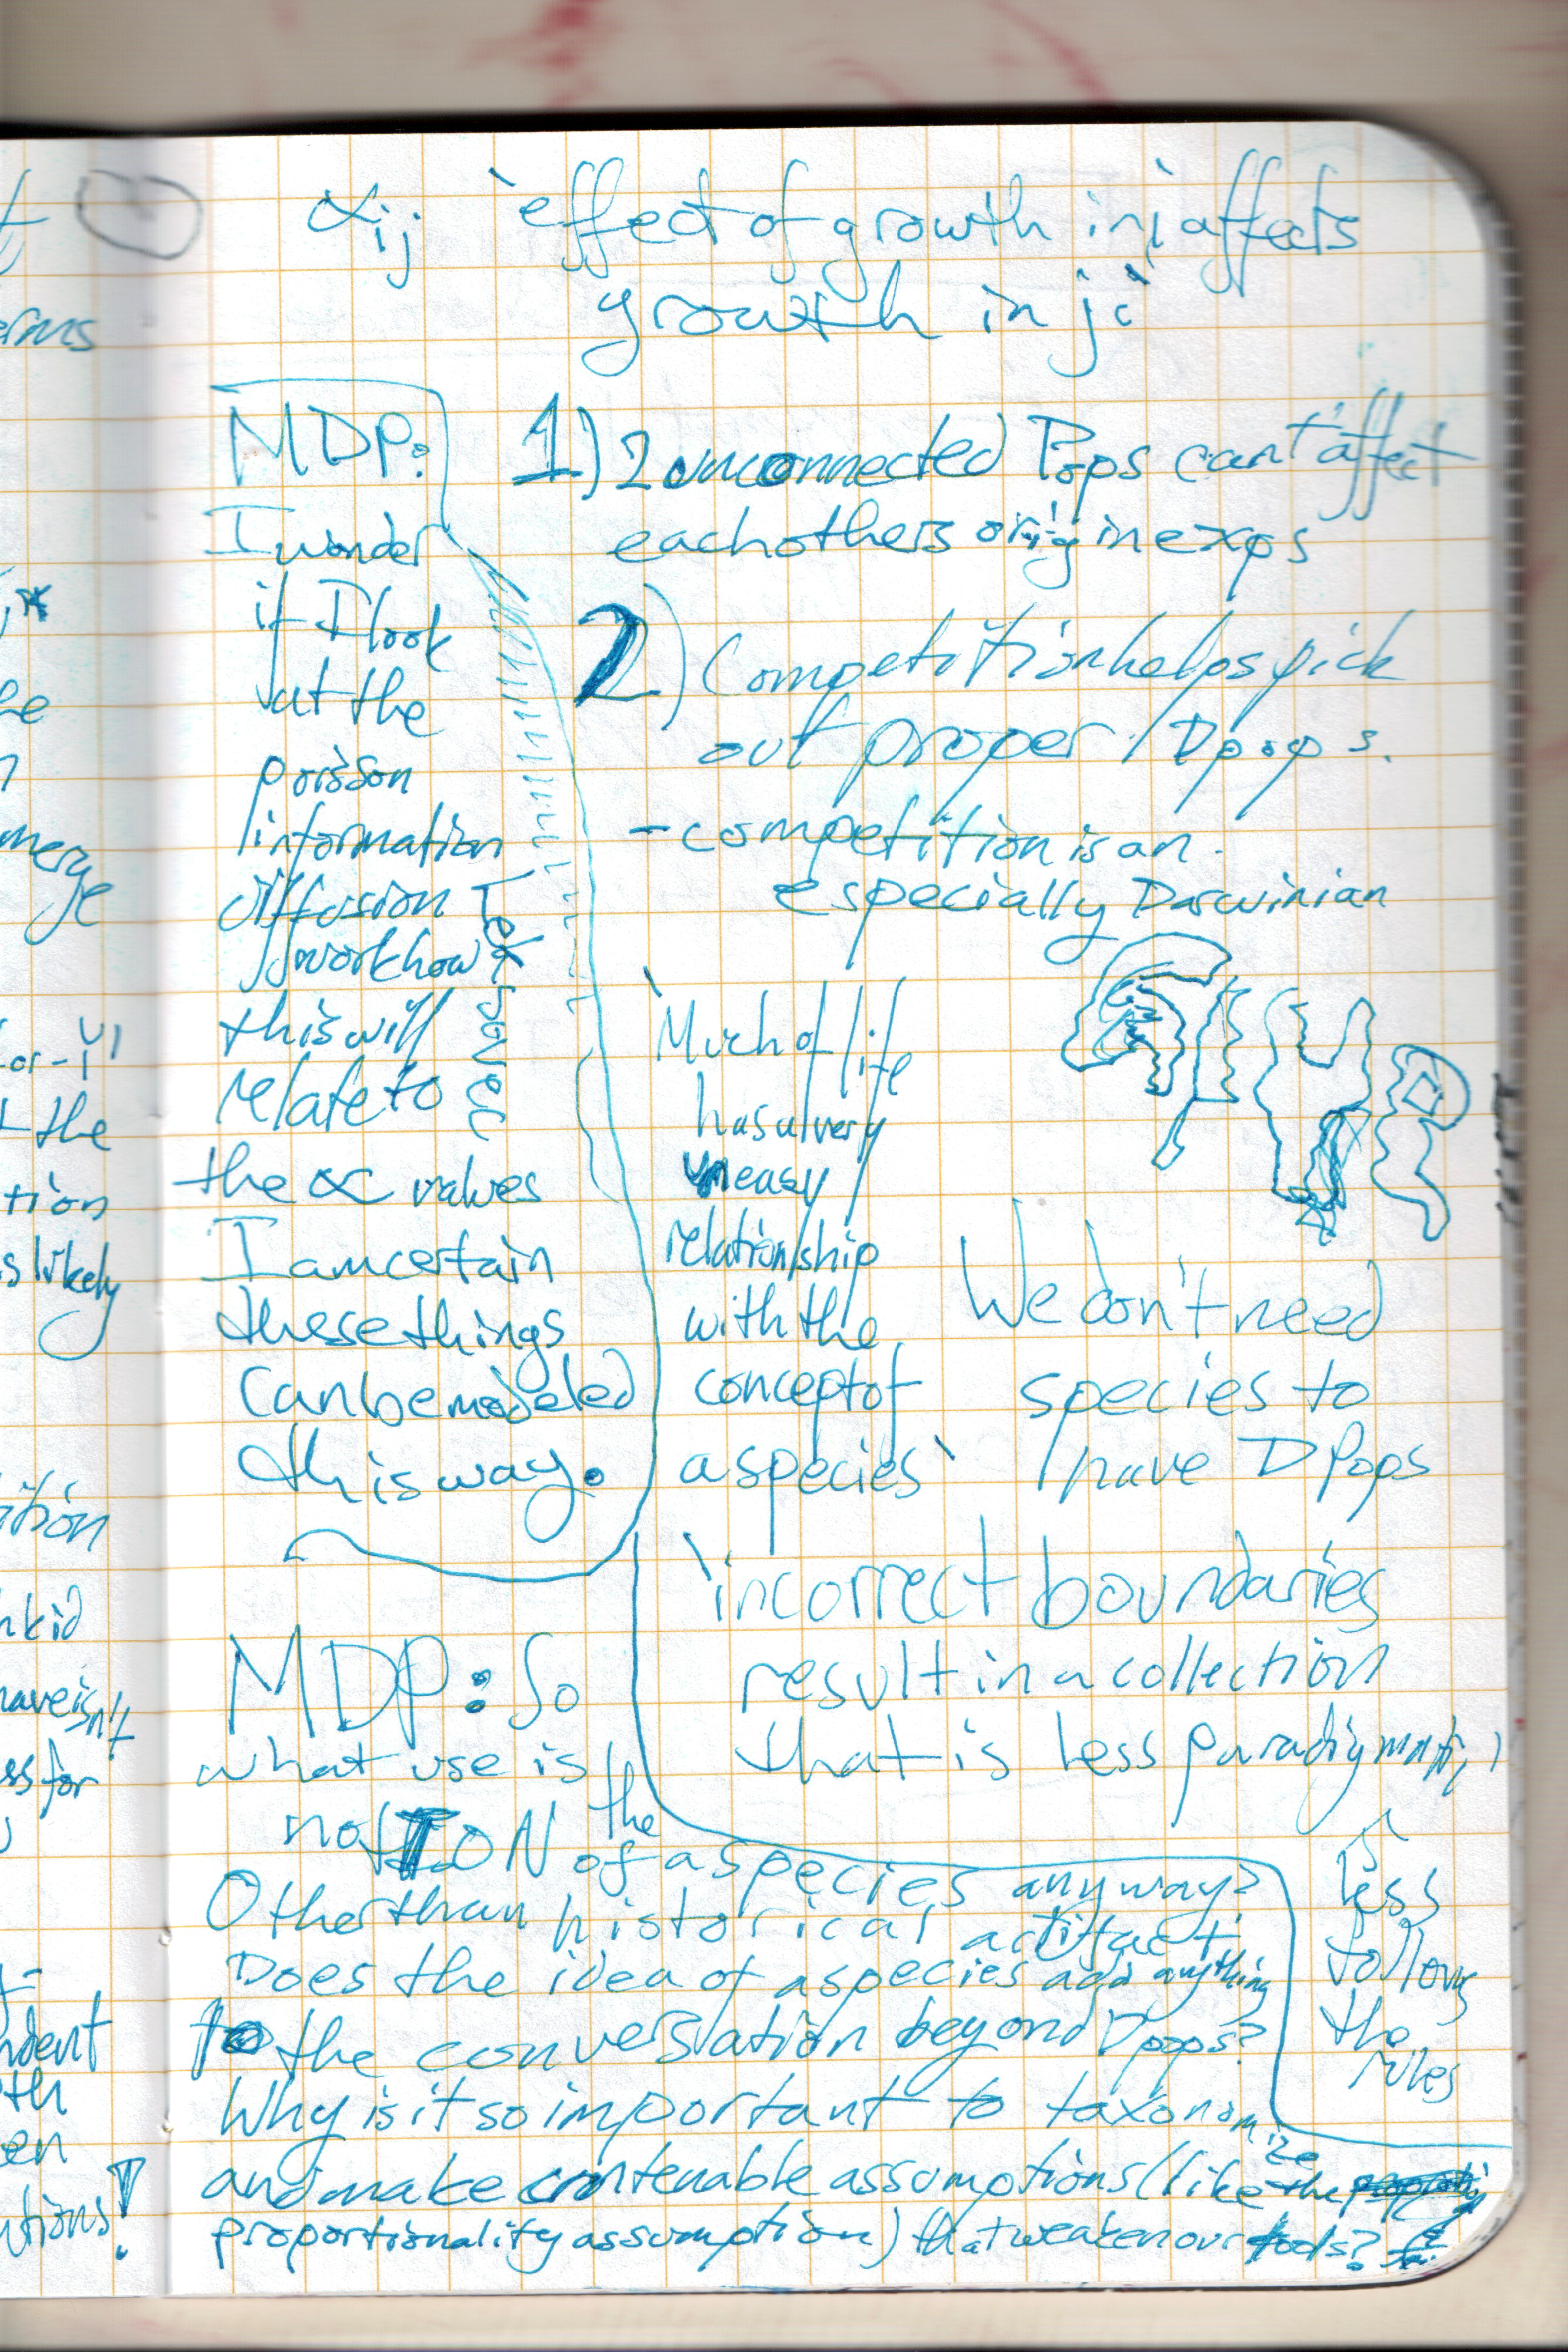 αij 'effect of growth in i affects
growth in j'
MDP:
I wonder
if I look
at the
poisson
information
diffusion
work how
this will
relate to
the α values
I am certain
these things
can be modeled
this way.
1) 2 unconnected Pops can't affect
each others origin exps
2) Competition helps pick
out proper Dpops.
- competition is an
especially Darwinian
'Much of life
has a very
uneasy
relationship
with the
concept of
a species'
We don't need
species to
have DPops
'incorrect boundaries
result in a collection
that is less paradigmatic'
less
follow
the
rules
MDP: So
what use is the
notION of a species anyway?
Other than historical artifact.
Does the idea of a species add anything
to the conversation beyond Dpops?
Why is it so important to taxonomize
and make untenable assumptions (like the
proportionality assumption) that weaken our tools?
erms
merge
or-
the
tion
s likely
ition
n kid
have isn't
ss for
ndent
th
en
utions!